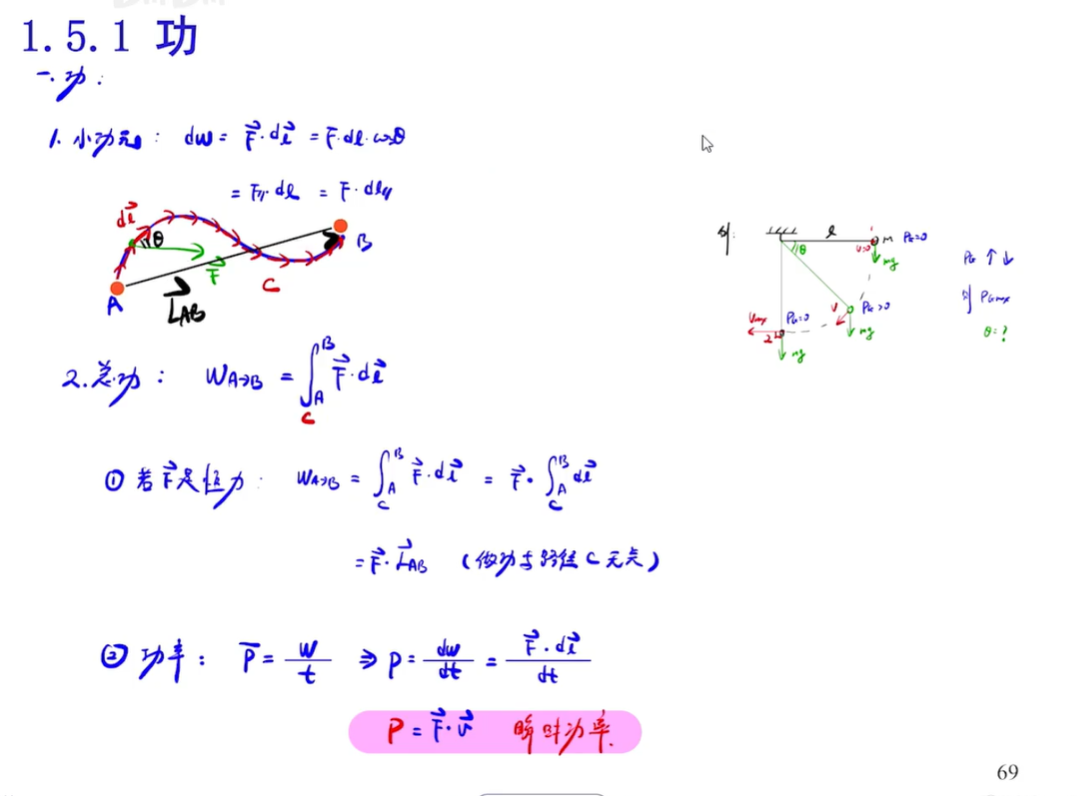 1.5.1 功
一.功:
1. 小功元: dw = F⃗·dl⃗ = F·dl·cosθ
= F∥·dl = F·dl∥
dl⃗
θ
F⃗
A
B
C
L⃗AB
2.总功: WA→B = ∫_A^B F⃗·dl⃗
C
① 若F⃗是恒力: WA→B = ∫_A^B F⃗·dl⃗ = F⃗·∫_A^B dl⃗
C C
= F⃗·L⃗AB (做功与路径C无关)
② 功率: P̄ = W/t ⇒ P = dw/dt = F⃗·dl⃗/dt
P = F⃗·v⃗ 瞬时功率.
例:
l
m PG=0
v=0
mg
θ
v
PG>0
mg
vmax
PG=0
mg
PG ↑↓
则 PGmax
θ=?
69